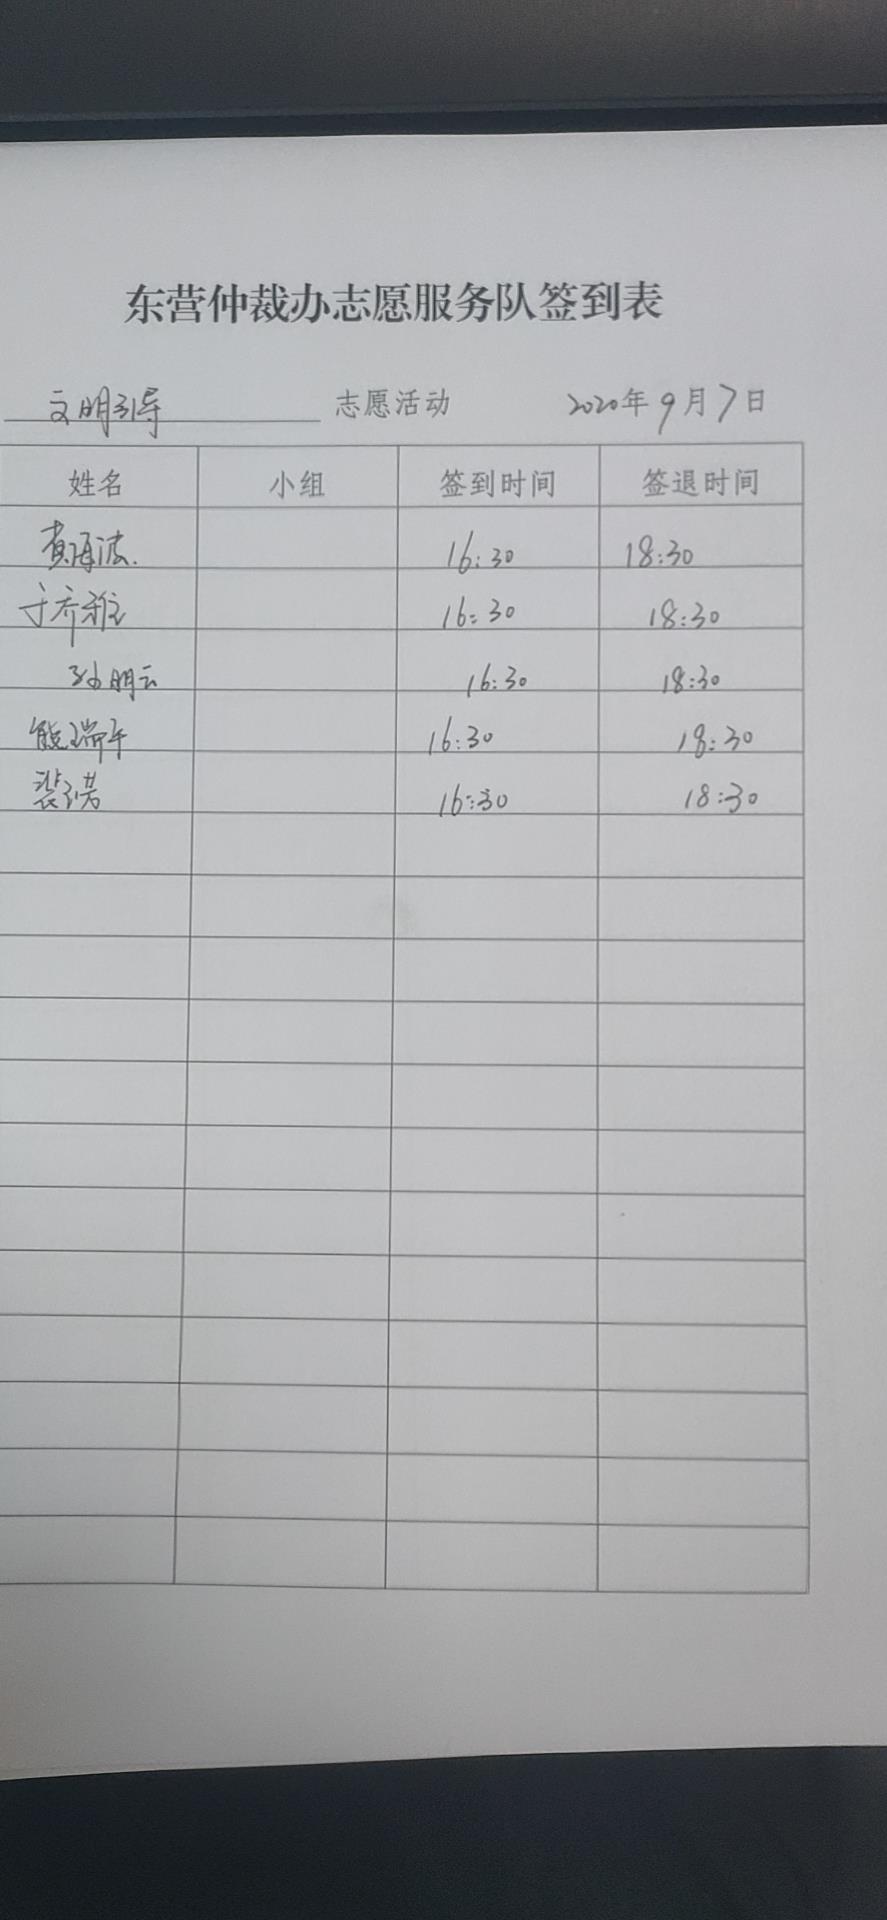 东营仲裁办志愿服务队签到表
文明引导 志愿活动 2020年9月7日
姓名 小组 签到时间 签退时间
黄海波 16:30 18:30
于乔雅 16:30 18:30
孙明云 16:30 18:30
熊瑞午 16:30 18:30
裴诺 16:30 18:30